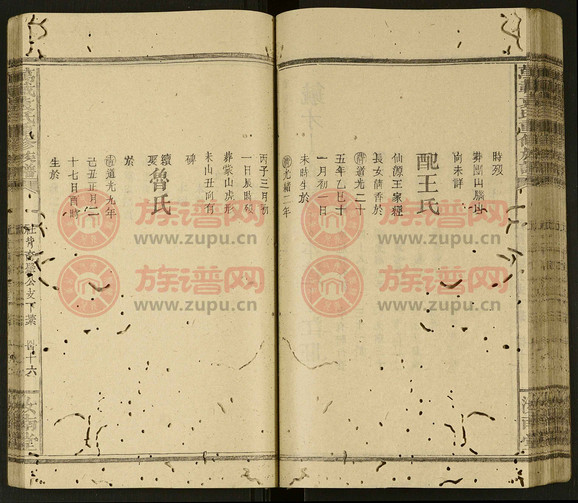 時歿
葬團山
向未詳
配王氏
仙源王家經
長女倩香於
清道光二十
五年乙巳十
一月初一日
未時生於
清光緒二年
丙子三月初
一日辰時歿
葬蒙山虎形
未山丑向有
碑
續娶魯氏
於
清道光九年
己丑正月二
十七日酉時
生於
十六
汝南堂
汝南堂
族谱网
www.zupu.cn
族谱网
www.zupu.cn
族谱网
www.zupu.cn
族谱网
www.zupu.cn